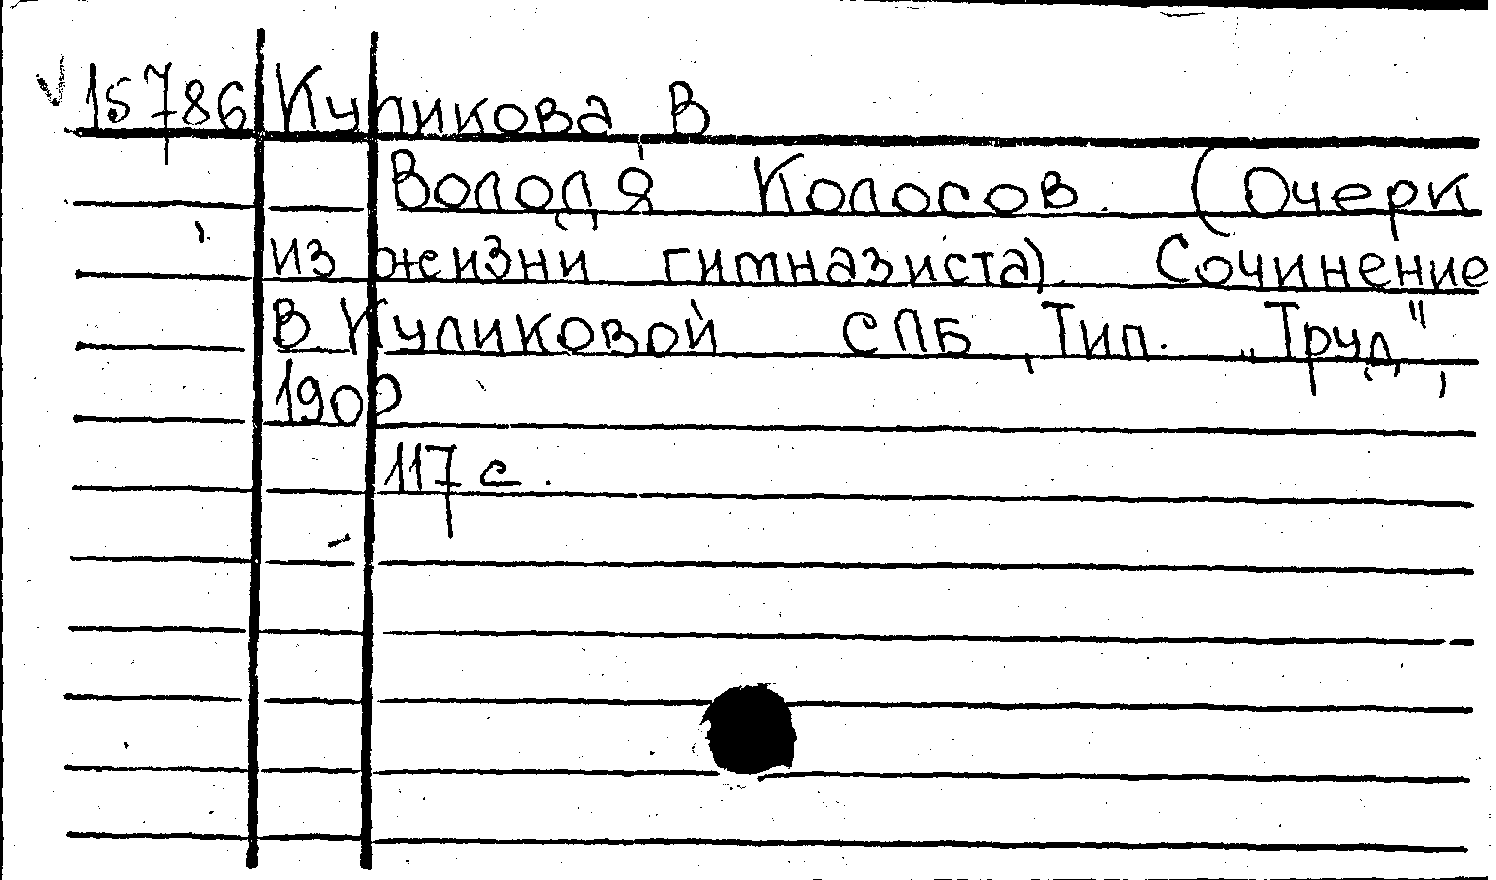 15786 Куликова В
Володя Колосов. (Очерк
из жизни гимназиста). Сочинение
В Куликовой СПБ, Тип. „Труд",
1902
117 с.